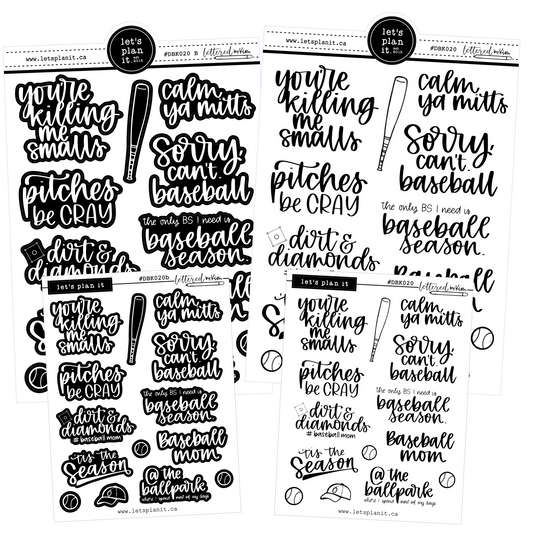 let's
plan
it.
EST. 2015
www.letsplanit.ca
#DBK020 B
lettered
you're
killing
me
smalls
calm,
ya mitts
Sorry,
can't.
baseball
pitches
be CRAY
the only BS I need is
baseball
season.
dirt &
diamonds
let's
plan
it.
EST. 2015
www.letsplanit.ca
#DBK020
lettered
you're
killing
me
smalls
calm,
ya mitts
Sorry,
can't.
baseball
pitches
be CRAY
the only BS I need is
baseball
season.
dirt &
diamonds
Baseball
let's plan it
#DBK020b
lettered
you're
killing
me
smalls
calm,
ya mitts
Sorry,
can't.
baseball
pitches
be CRAY
the only BS I need is
baseball
season.
dirt &
diamonds
#baseball mom
Baseball
mom.
'tis the
Season
@ the
ballpark
where I spend most of my days
www.letsplanit.ca
let's plan it
#DBK020
lettered
you're
killing
me
smalls
calm,
ya mitts
Sorry,
can't.
baseball
pitches
be CRAY
the only BS I need is
baseball
season.
dirt &
diamonds
#baseball mom
Baseball
mom.
'tis the
Season
@ the
ballpark
where I spend most of my days
www.letsplanit.ca